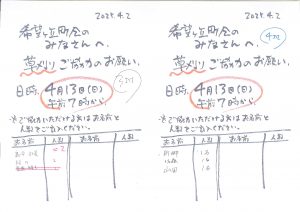 2025.4.2
希望ヶ丘町会の
みなさんへ.
草メリリ ご協力のお願い.
3班
日時. 4月13日(日)
午前7時から.
※ご協力いただける方はお名前と
人数をご記入ください.
お名前 人数 お名前 人数
2025.4.2
希望ヶ丘町会の
みなさんへ.
4班
草メリリ ご協力のお願い.
日時. 4月13日(日)
午前7時から.
※ご協力いただける方はお名前と
人数をご記入ください.
お名前 人数 お名前 人数